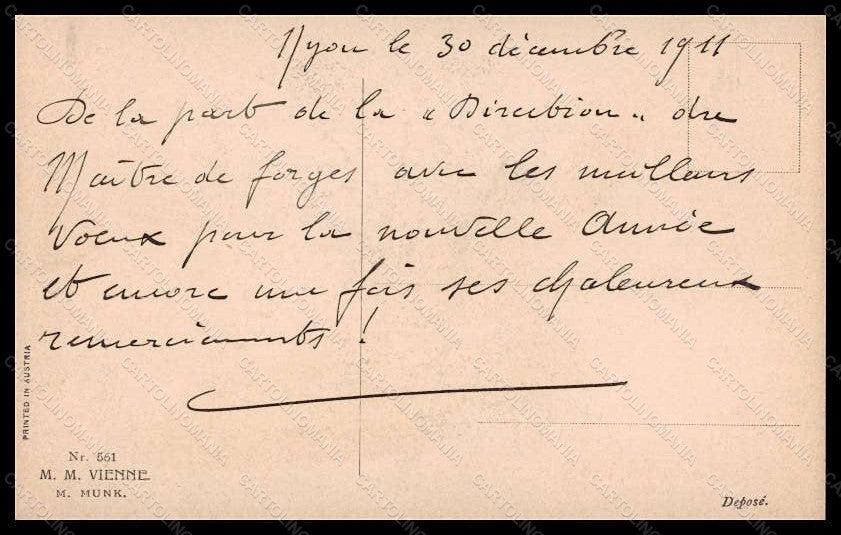 Nyon le 30 décembre 1911
De la part de la "Direction" du
Maître de forges avec les meilleurs
voeux pour la nouvelle Année
et encore une fois ses chaleureux
remerciements !
PRINTED IN AUSTRIA
Nr. 561
M. M. VIENNE
M. MUNK.
Deposé.
CARTOLINOMANIA